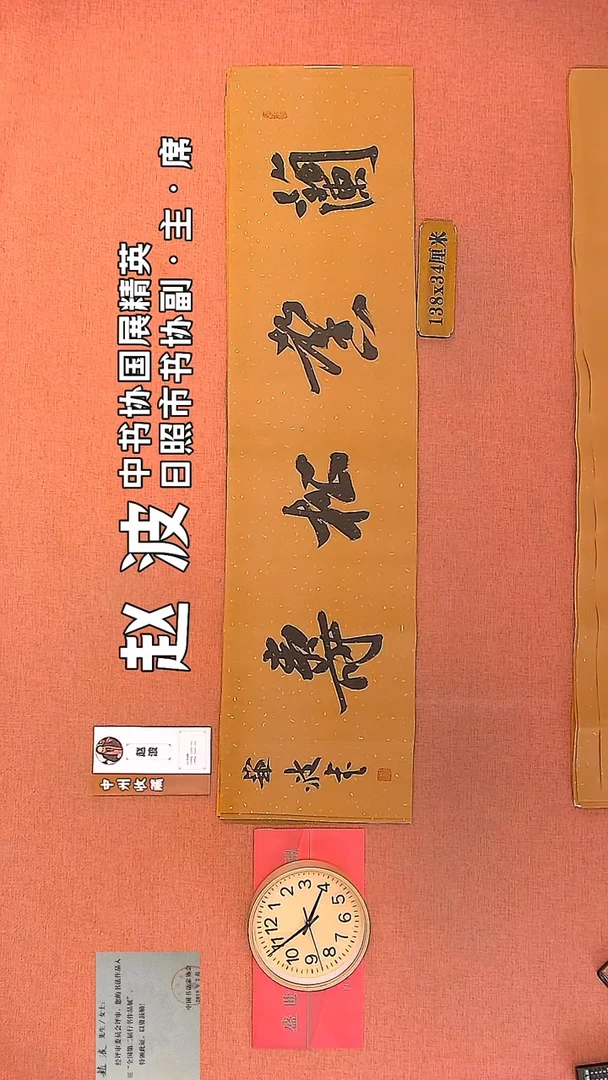 赵波
中书协国展精英
日照市书协副·主·席
松壽
波书
138x34厘米
赵波
中州收藏
12
1
2
3
4
5
6
7
8
9
10
11
先生/女士:
经评审委员会评审,您的书法作品入
展"全国第二届行书作品展",
特颁此证,以资鼓励!
中国书法家协会